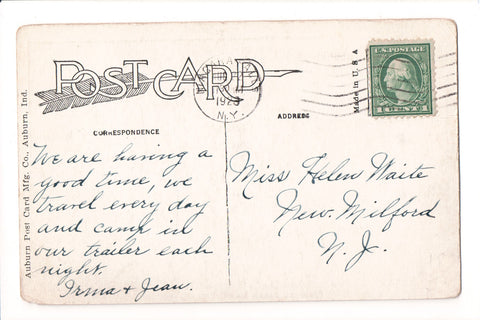 POST CARD
1923
N.Y.
U.S. POSTAGE
Made in U S A
Auburn Post Card Mfg. Co., Auburn, Ind.
CORRESPONDENCE
ADDRESS
We are having a
good time, we
travel every day
and camp in
our trailer each
night.
Irma + Jean.
Miss Helen Waite
New. Milford
N. J.